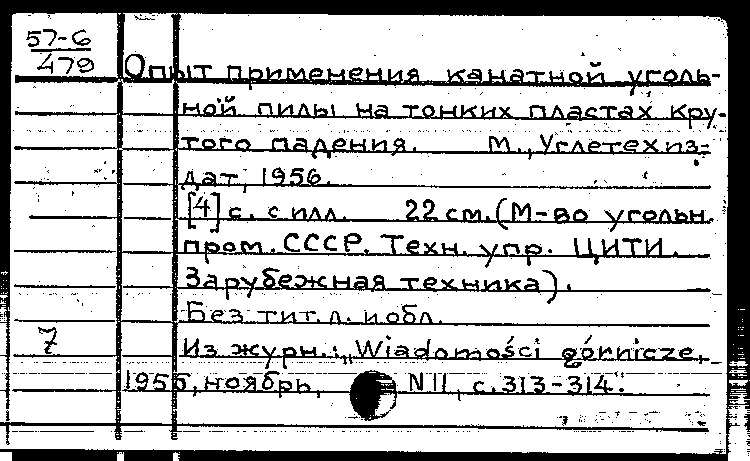 57-6
479
Опыт применения канатной уголь-
ной пилы на тонких пластах кру-
того падения. М., Углетехиз-
дат, 1956.
[4] с. с илл. 22 см. (М-во угольн.
пром. СССР. Техн. упр. ЦИТИ.
Зарубежная техника).
Без тит. л. и обл.
7 Из журн.: „Wiadomości górnicze,
1955, ноябрь, N 11, с. 313-314".